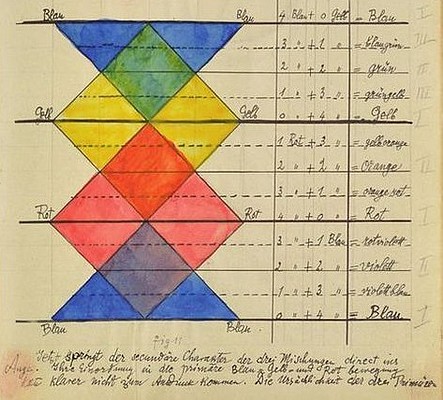 Blau Blau 4 Blau + 0 Gelb = Blau I
3 " + 1 " = blaugrün III
2 " + 2 " = grün II
1 " + 3 " = grüngelb III
Gelb Gelb 0 " + 4 " = Gelb I
1 Rot + 3 " = gelborange
2 " + 2 " = Orange II
3 " + 1 " = orangerot
Rot Rot 4 " + 0 " = Rot I
3 " + 1 Blau = rotviolett
2 " + 2 " = violett II
1 " + 3 " = violettblau
Blau Blau. 0 " + 4 " = Blau I
fig 11
Jetzt springt der secundäre Charakter der drei Mischungen direct ins
Auge. Ihre Einordnung in die primäre Blau = Gelb = und Rot bewegung
klarer nicht zum Ausdruck kommen. Die der drei Primären